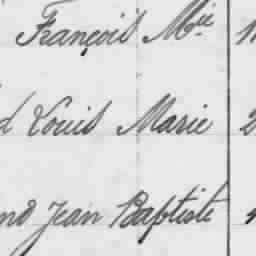 François Mie
d Louis Marie 2
nd Jean Baptiste